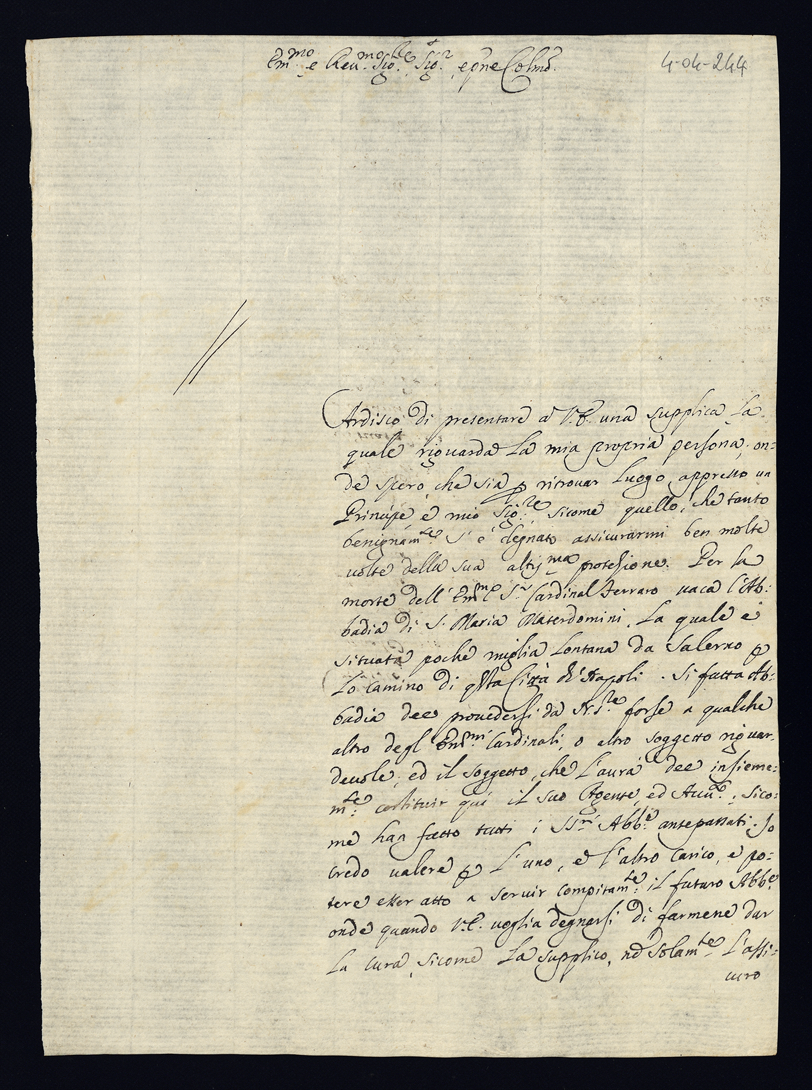 Em.mo e Reu.mo Sig.re Sig.r e pne Colmo.
4-04-244
Ardisco di presentare à V.E. una supplica la
quale riguarda la mia propria persona, on:
de spero, che sia p ritrovar luogo appresso un
Principe e mio Sig.re, sicome quello, che tanto
benignam.te s'è degnato assicurarmi ben molte
volte della sua altiss.ma protezione. Per la
morte dell'Em.mo S.r Cardinal Ferraro vaca l'Ab:
badia di S. Maria Materdomini, la quale è
situata poche miglia lontana da Salerno p
lo camino di qsta Città di Napoli. Si fatta Ab:
badia dee provedersi da N.S.re forse a qualche
altro degl'Em.mi Cardinali, o altro soggetto riguar:
devole, ed il soggetto, che l'aurà dee insieme:
m.te costituir quì il suo Agente, ed Auu.o, sico:
me han fatto tutti i SS.ri Abb.i antepassati. Io
credo valere p l'uno, e l'altro carico, e po:
tere esser atto a servir compitam.te il futuro Abb.e
onde quando V.E. voglia degnarsi di farmene dar
la cura, sicome la supplico, nõ solam.te l'assi:
curo